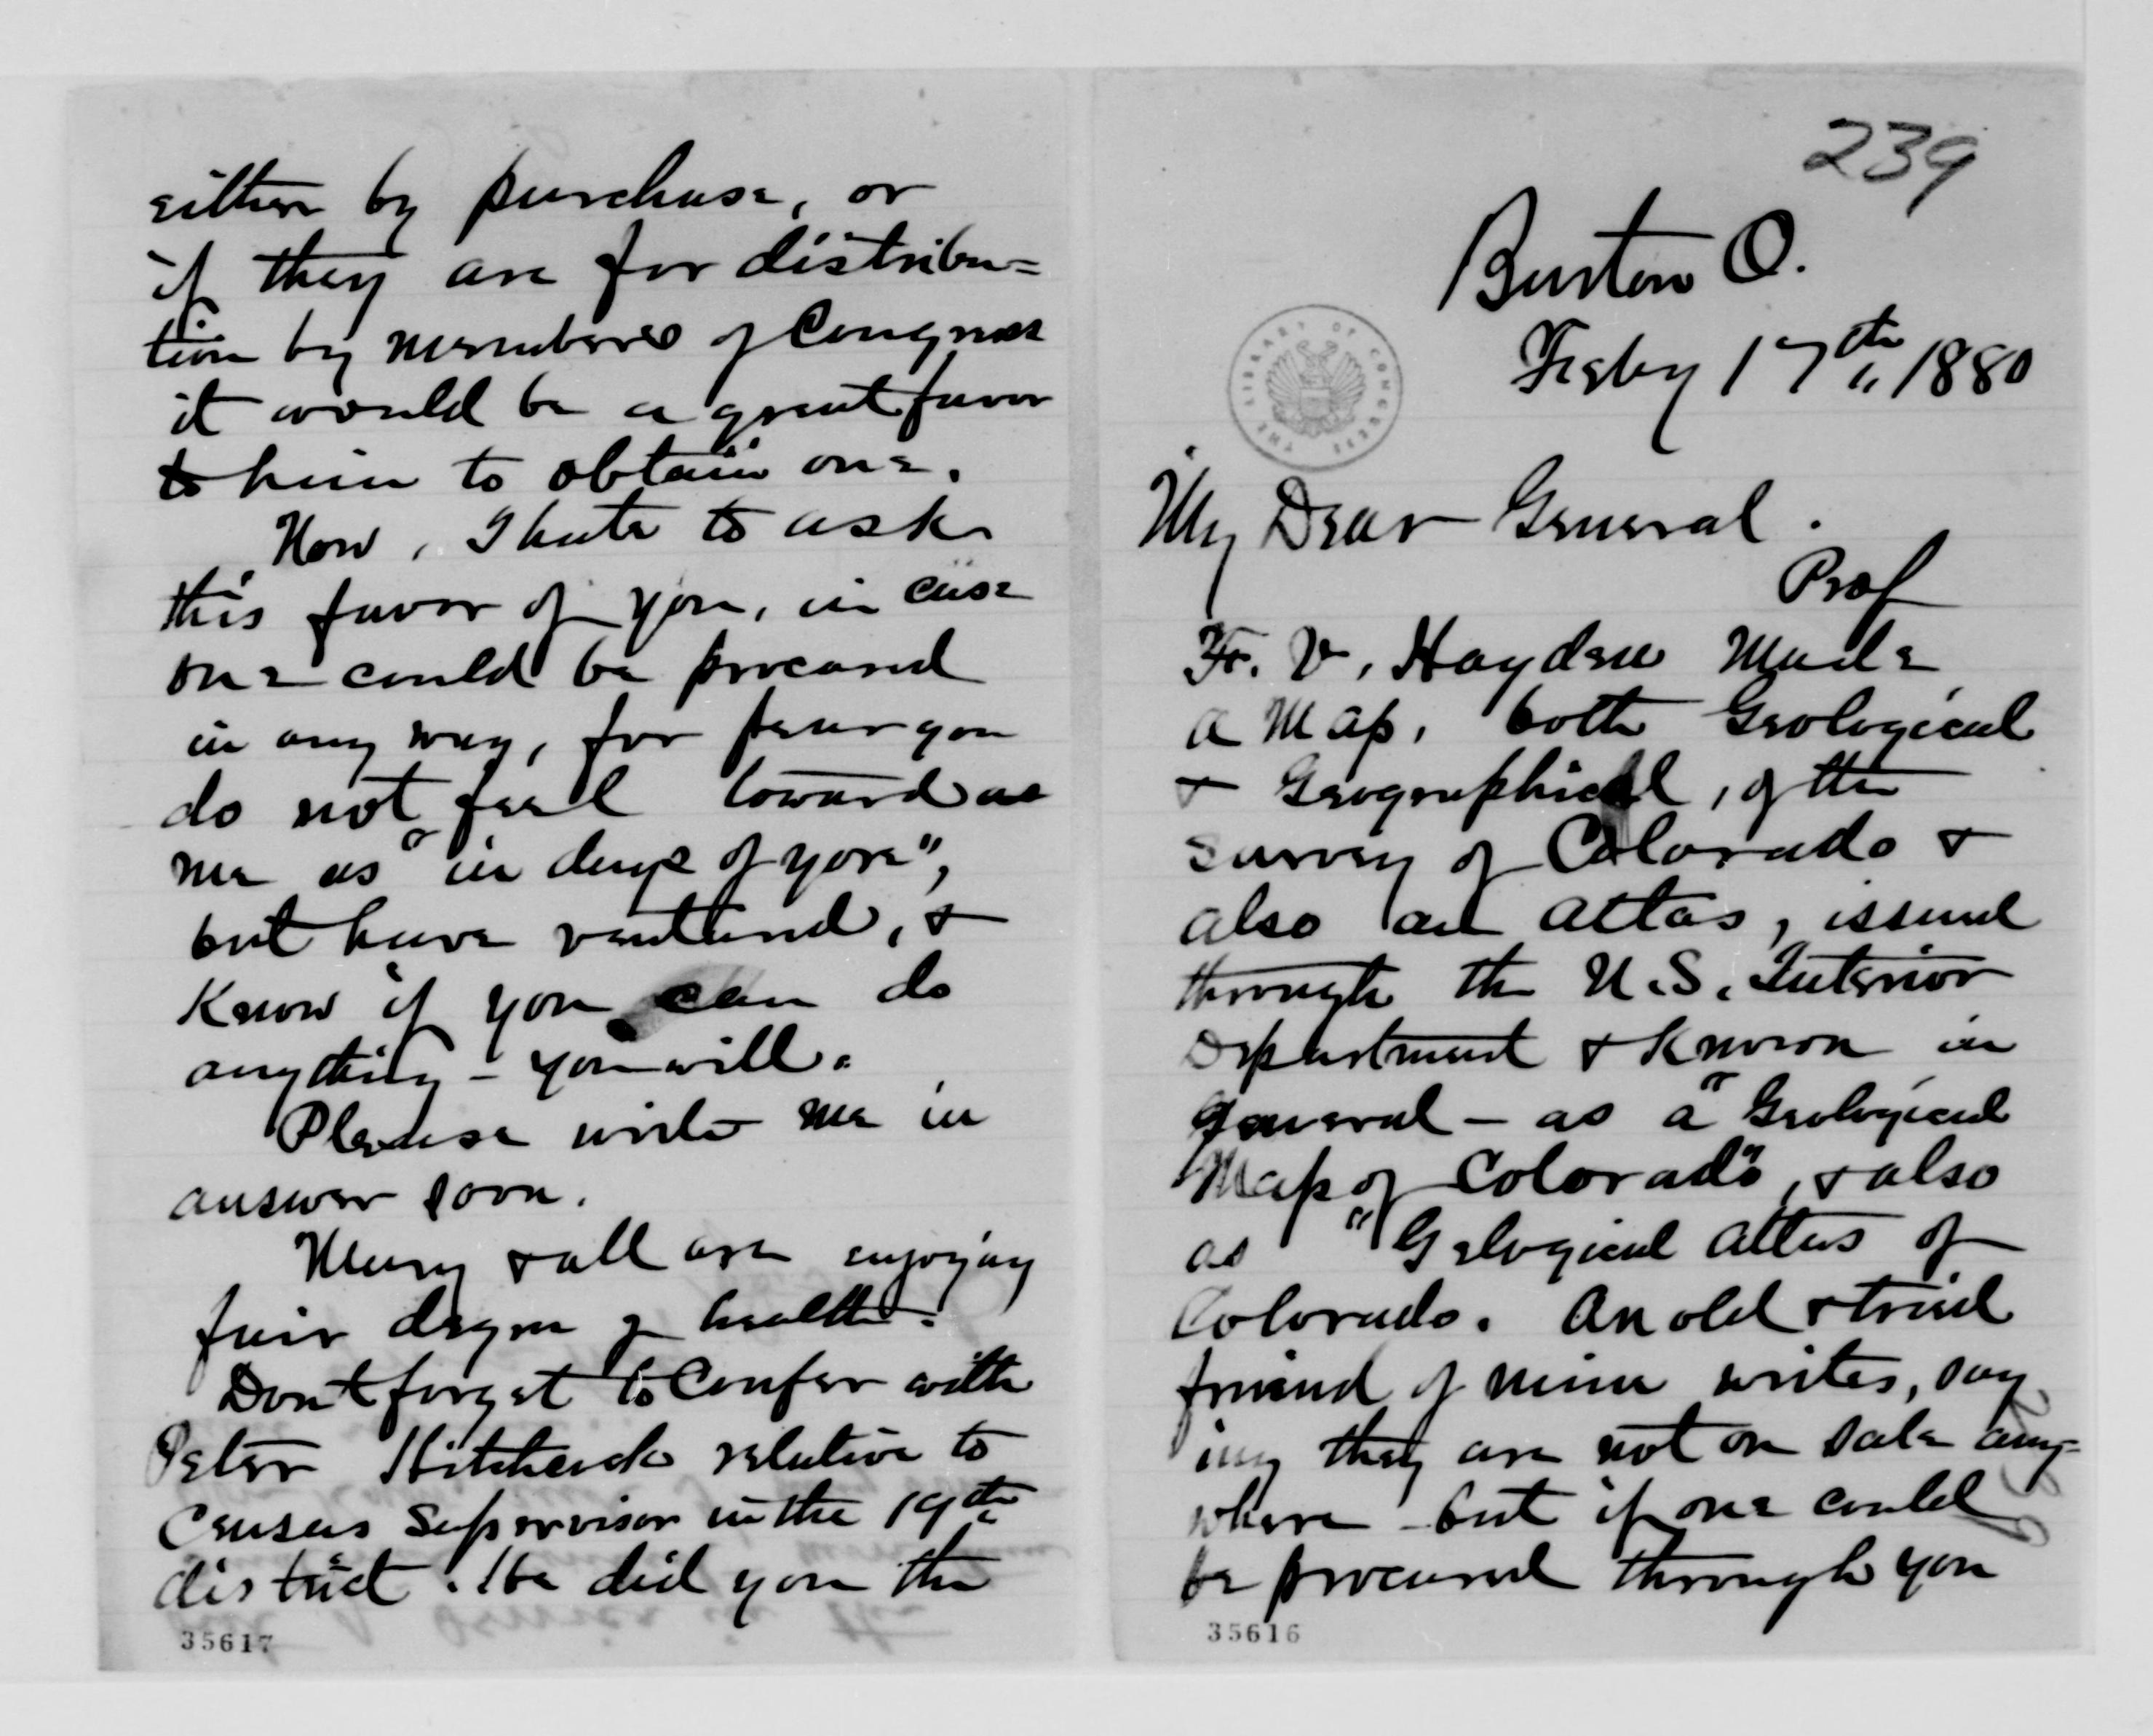 239
Burton O.
Feby 17th, 1880
THE LIBRARY OF CONGRESS
My Dear General.
Prof
F. V. Hayden Made
a Map, both Geological
& Geographical, of the
survey of Colorado &
also an atlas, issued
through the U.S. Interior
Department & known in
general - as a "Geological
Map of Colorado", & also
as "Gelogical Atlas of
Colorado. An old & tried
friend of mine writes, say
ing they are not on sale any=
where - but if one could
be procured through you
35616
either by purchase, or
if they are for distribu=
tion by members of Congress
it would be a great favor
to him to obtain one.
Now, I hate to ask
this favor of you, in case
one could be procured
in any way, for fear you
do not feel toward
me as "in days of yore",
but have ventured, &
Know if you can do
anything - you will.
Please write me in
answer soon.
Mary & all are enjoying
fair degree of health.
Dont forget to Confer with
Peter Hitchcock relative to
Census Supervisor in the 19th
district. He did you the
35617